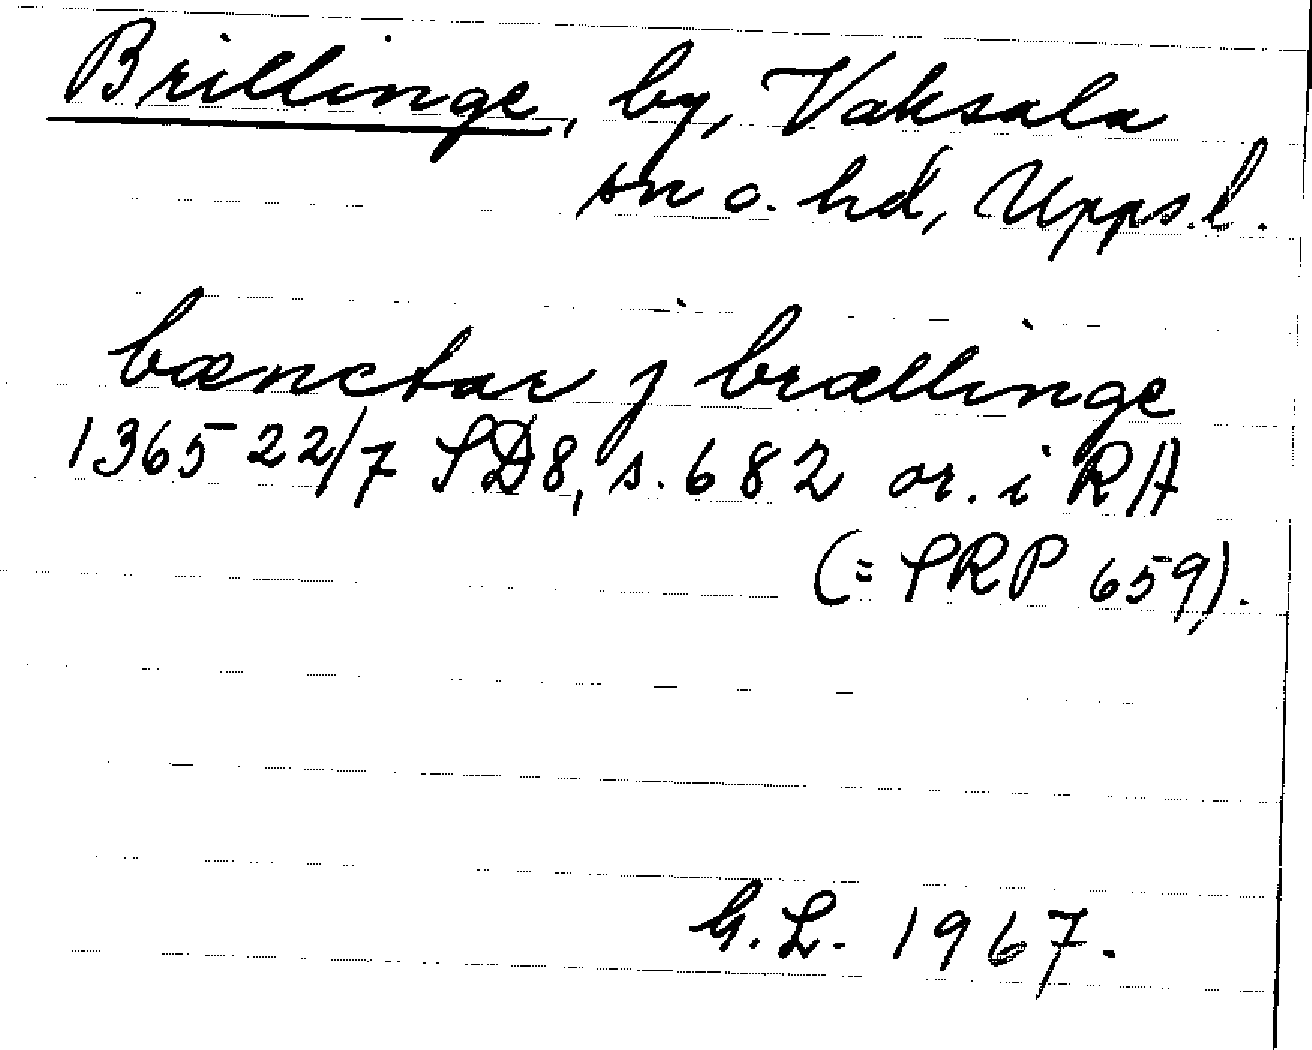 Brillinge, by, Vaksala
sn o. hd, Upps. l.
bænctar j brællinge
1365 22/7 SD8, s. 682 or. i RA
(= SRP 659).
G.L. 1967.